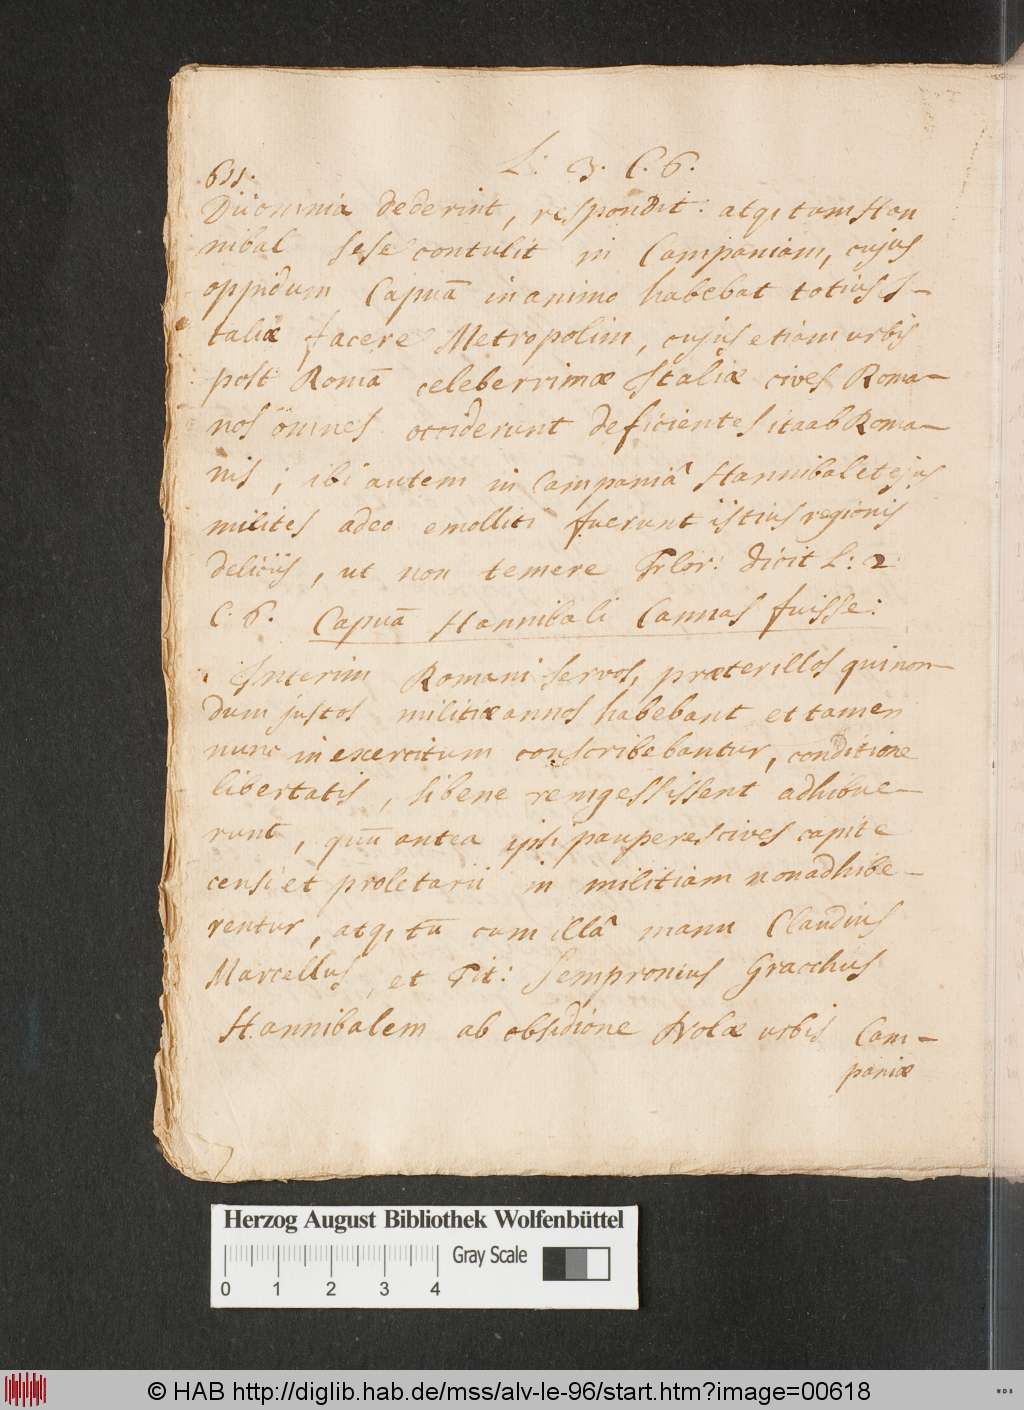 L: 3. C. 6.
611.
Dii omnia dederint, respondit: atq, tam Han
nibal sese contulit in Campaniam, cujus
oppidum Capuā in animo habebat totius I-
taliæ facere Metropolim, cujus etiam urbis
post Romā celeberrimæ Italiæ cives Roma-
nos omnes occiderunt deficientes ita ab Roma-
nis; ibi autem in Campaniâ Hannibal et ejus
milites adeo emolliti fuerunt istius regionis
deliciis, ut non temere Flor: dicit L: 2
C. 6. Capuā Hannibali Cannas fuisse:
Interim Romani servos, præter illos qui non-
dum justos militiæ annos habebant et tamen
nunc in exercitum conscribebantur, conditione
libertatis, si bene rem gessissent adhibue-
runt, quū antea ipsi pauperes cives capite
censi et proletarii in militiam non adhibe-
rentur, atq, tū cum illâ manu Claudius
Marcellus, et Tit: Sempronius Gracchus
Hannibalem ab obsidione Nolæ urbis Cam-
paniæ
Herzog August Bibliothek Wolfenbüttel
Gray Scale
0 1 2 3 4
© HAB http://diglib.hab.de/mss/alv-le-96/start.htm?image=00618